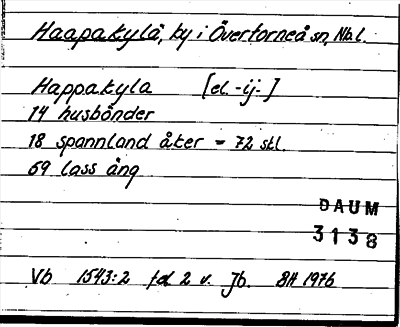 Haapakylä, by i Övertorneå sn, Nb.l.
Happakyla [el. -ij-]
14 husbönder
18 spannland åker = 72 stl.
69 lass äng
DAUM
3138
Vb 1543:2 fol 2 v. Jb. BH 1976